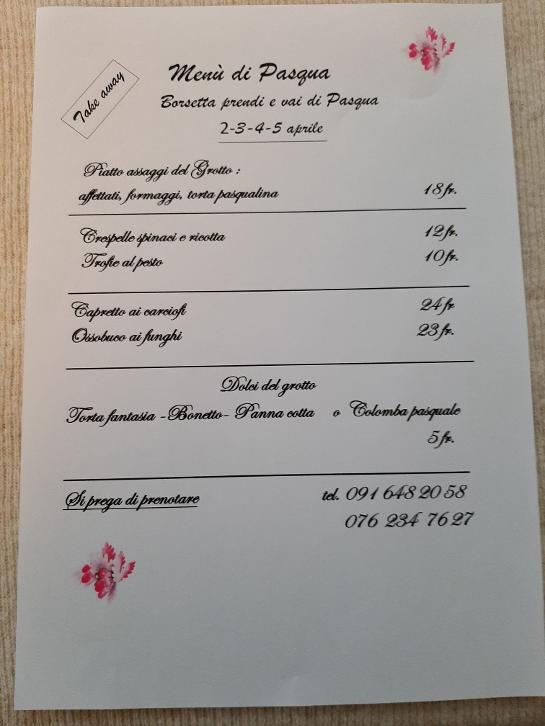 Take away
Menù di Pasqua
Borsetta prendi e vai di Pasqua
2-3-4-5 aprile
Piatto assaggi del Grotto :
affettati, formaggi, torta pasqualina 18fr.
Crespelle spinaci e ricotta 12fr.
Trofie al pesto 10fr.
Capretto ai carciofi 24fr
Ossobuco ai funghi 23fr.
Dolci del grotto
Torta fantasia - Bonetto - Panna cotta o Colomba pasquale
5fr.
Si prega di prenotare tel. 091 648 20 58
076 234 76 27